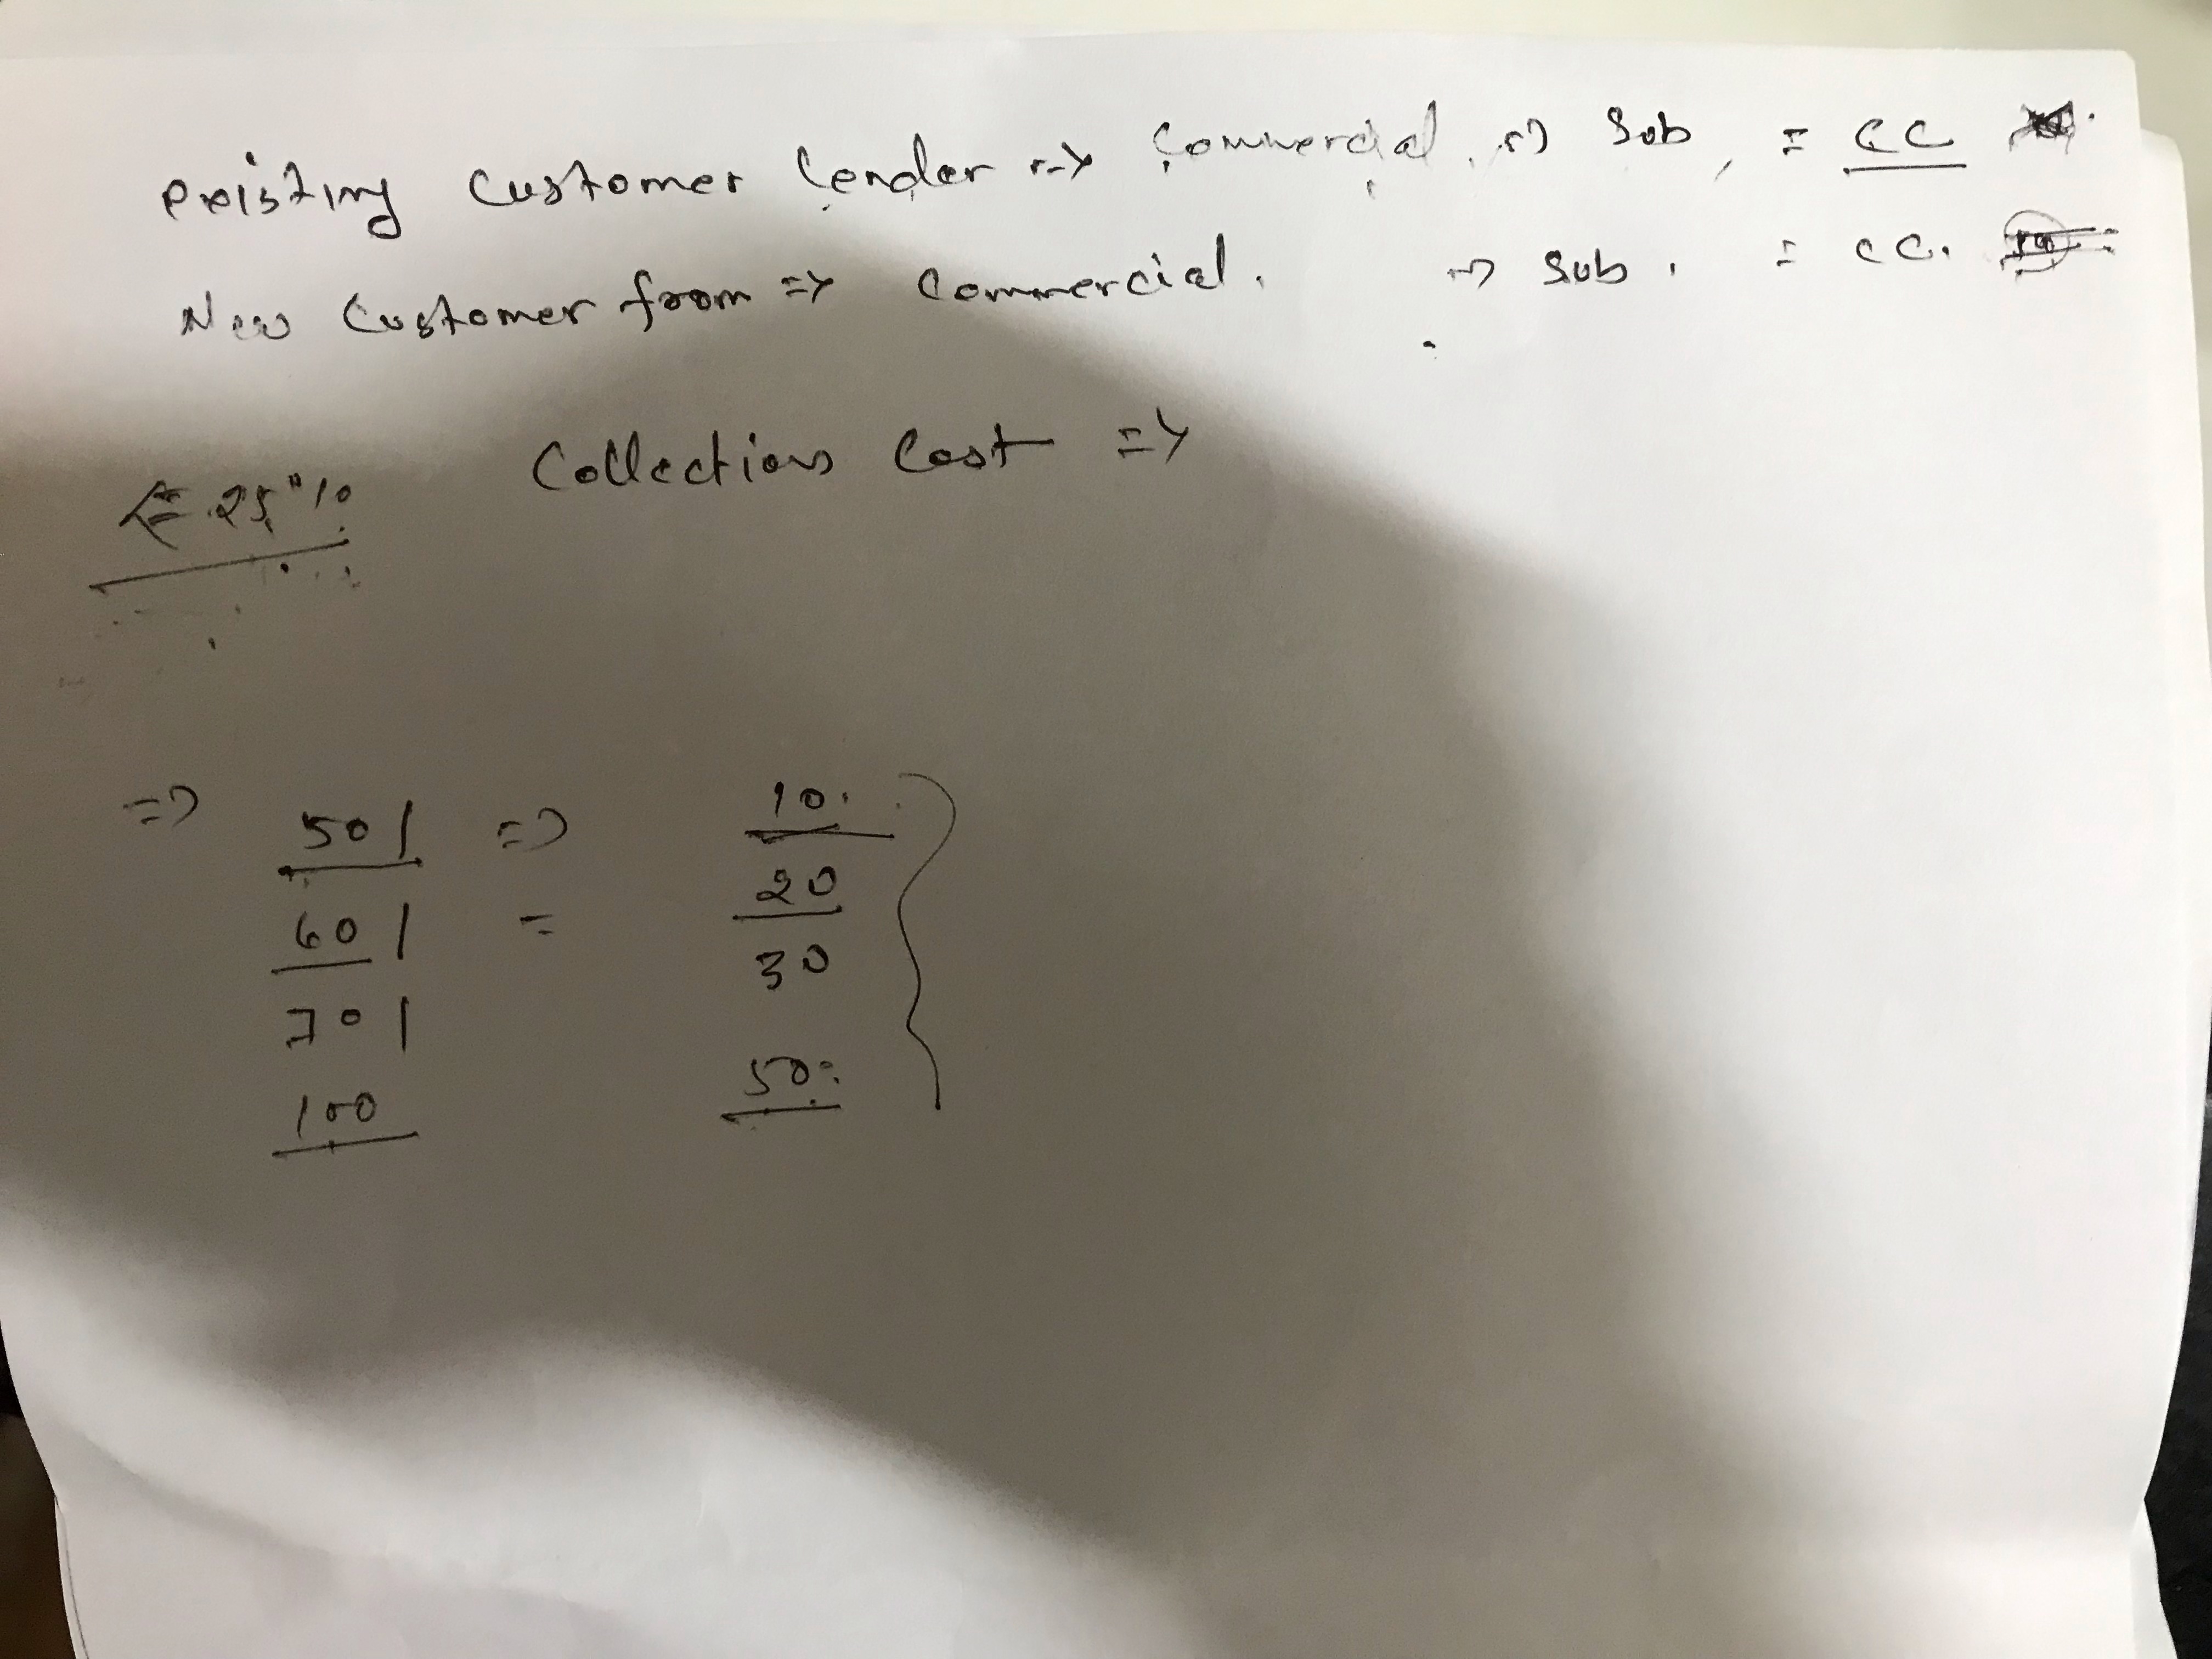 existing customer lender => Commercial. => Sub, = CC
New Customer from => Commercial. => Sub. = CC.
Collections Cost =>
<= 25%
=> 50 | => 10.
60 | = 20
70 | 30
100 50